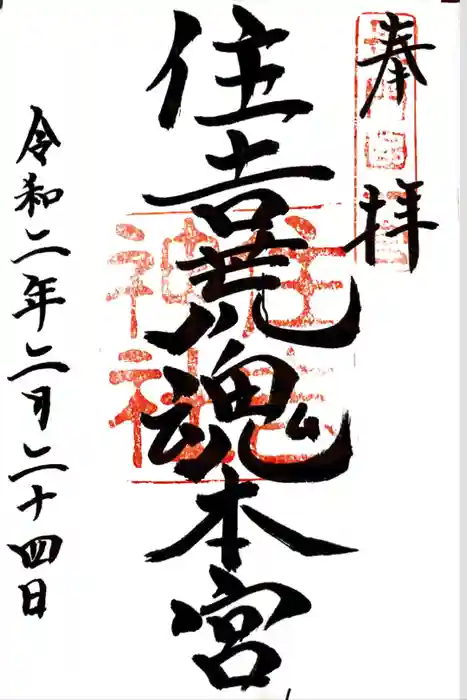 奉拝
住吉荒魂本宮
住吉
神社
令和二年二月二十四日